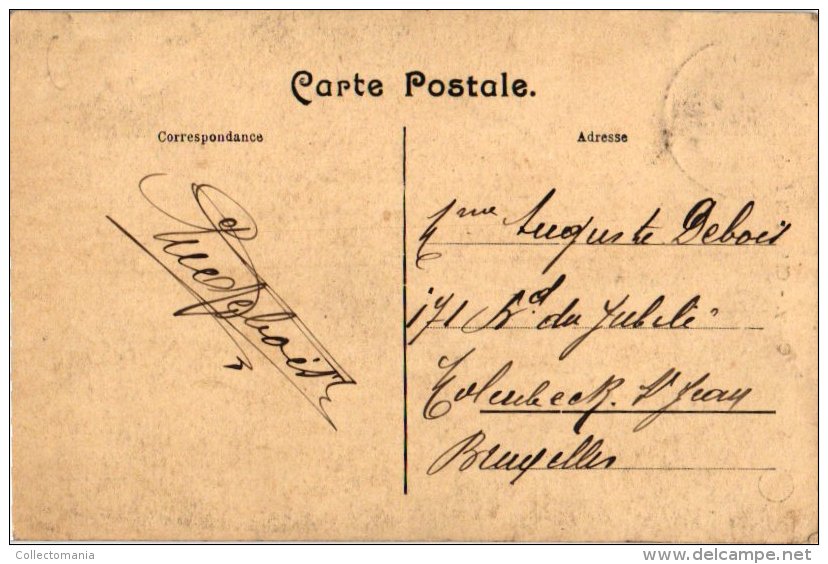 Carte Postale.
Correspondance
Adresse
Mme Auguste Debois
171 Bd du Jubilé
Molenbeck St Jean
Bruxelles
Debois
Collectomania
delcampe.net